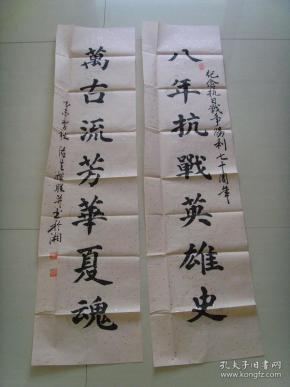 八年抗戰英雄史
紀念抗日戰争勝利七十周年
萬古流芳華夏魂
乙未
书於湘
孔夫子旧书网